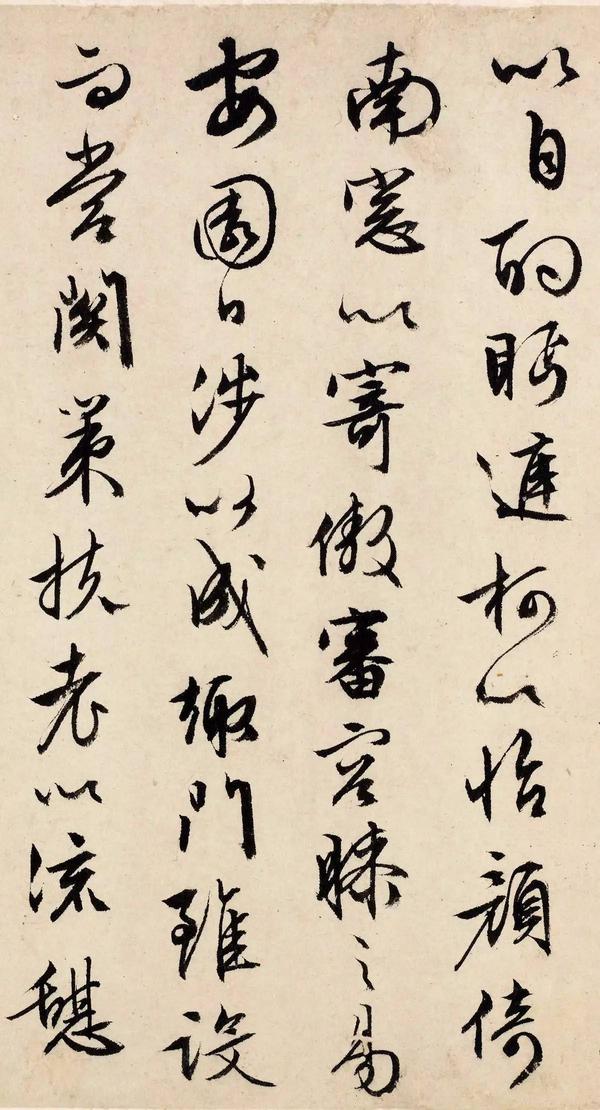 以自酌眄庭柯以怡顔倚
南窓以寄傲審容膝之易
安園日涉以成趣門雖設
而常関策扶老以流憩